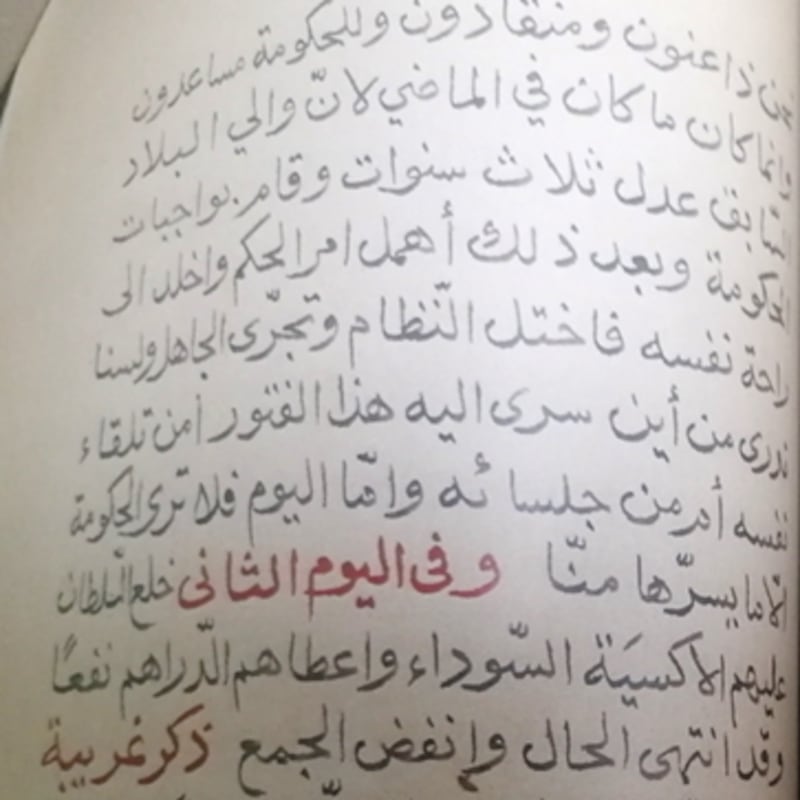 نحن ذاعنون ومنقادون وللحكومة مساعدون
وانما كان ما كان في الماضي لانّ والي البلاد
السّابق عدل ثلاث سنوات وقام بواجبات
الحكومة وبعد ذلك أهمل امر الحكم واخلد الى
راحة نفسه فاختل النّظام وتجرّى الجاهل ولسنا
ندرى من أين سرى اليه هذا الفتور أمن تلقاء
نفسه أم من جلسائه وامّا اليوم فلا ترى الحكومة
الّا ما يسرّها منّا وفى اليوم الثانى خلع السّلطان
عليهم الاكسيَة السّوداء واعطاهم الدّراهم نفعًا
وقد انتهى الحال وانفض الجمع ذكر غريبة